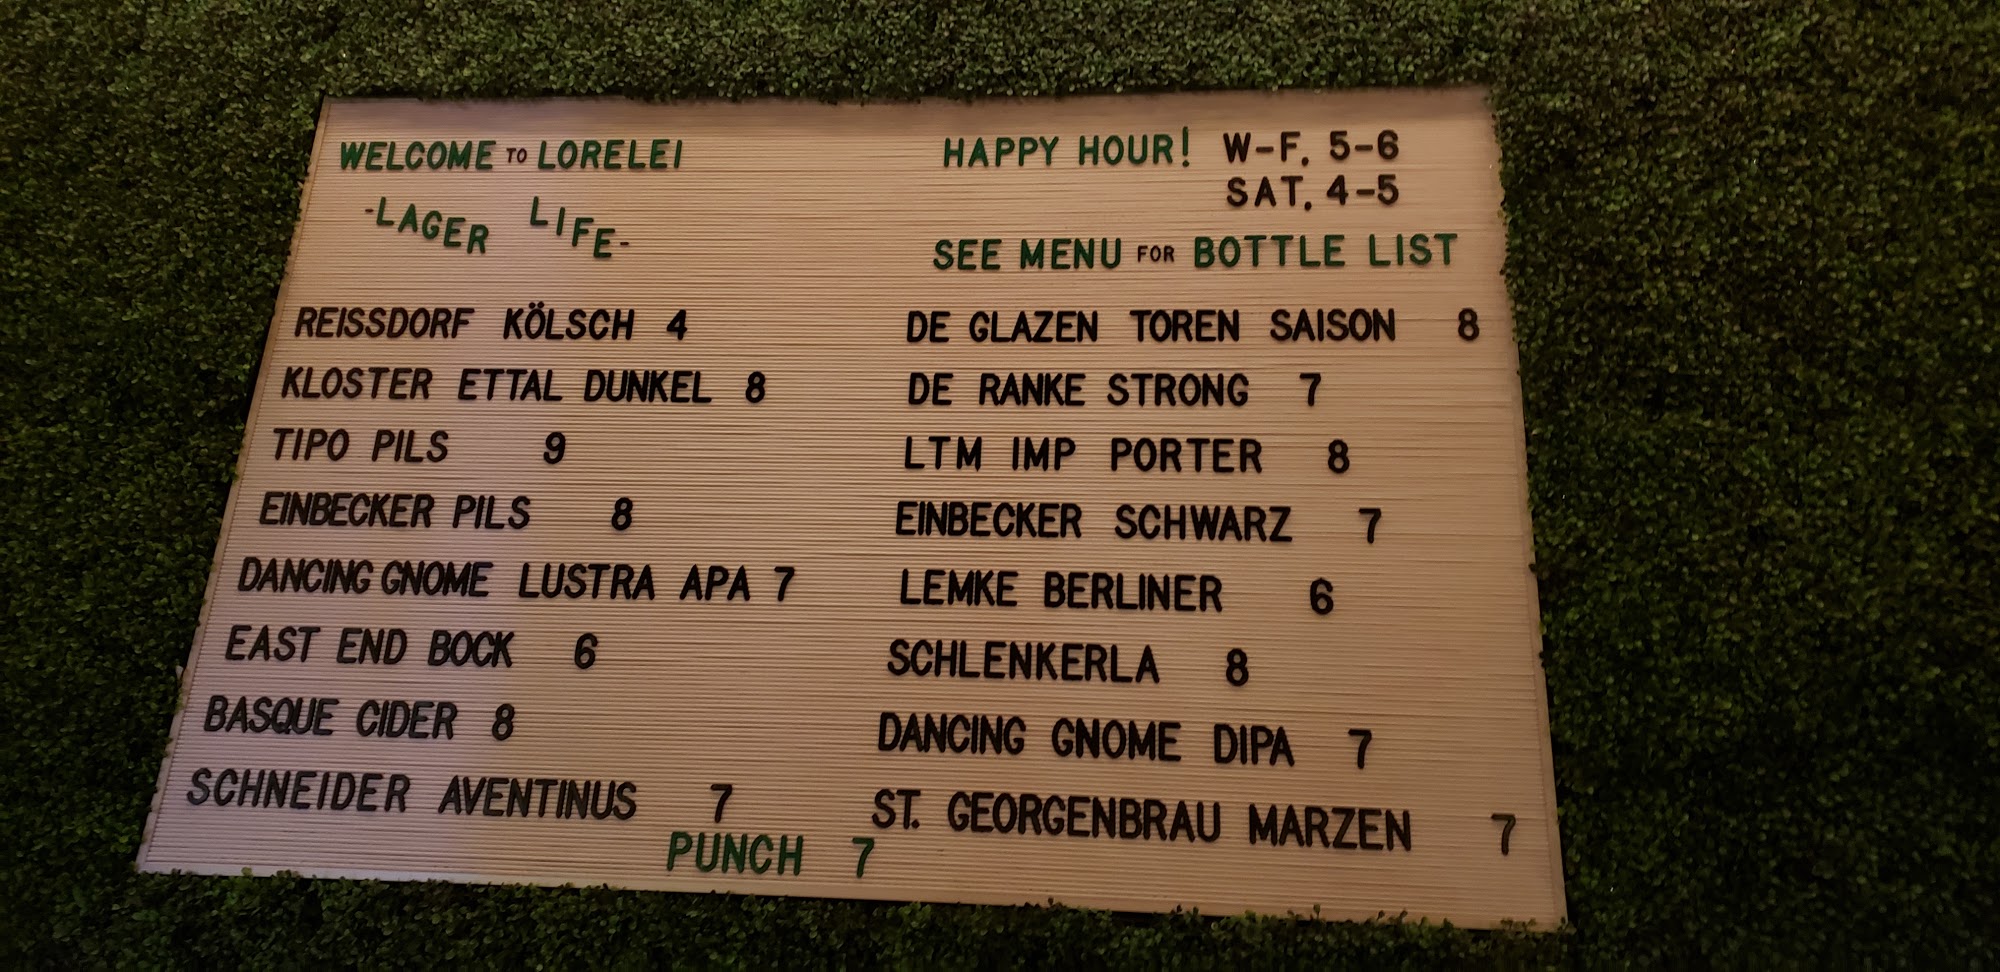 WELCOME TO LORELEI
-LAGER LIFE-
HAPPY HOUR! W-F. 5-6
SAT. 4-5
SEE MENU FOR BOTTLE LIST
REISSDORF KÖLSCH 4
KLOSTER ETTAL DUNKEL 8
TIPO PILS 9
EINBECKER PILS 8
DANCING GNOME LUSTRA APA 7
EAST END BOCK 6
BASQUE CIDER 8
SCHNEIDER AVENTINUS 7
DE GLAZEN TOREN SAISON 8
DE RANKE STRONG 7
LTM IMP PORTER 8
EINBECKER SCHWARZ 7
LEMKE BERLINER 6
SCHLENKERLA 8
DANCING GNOME DIPA 7
ST. GEORGENBRAU MARZEN 7
PUNCH 7